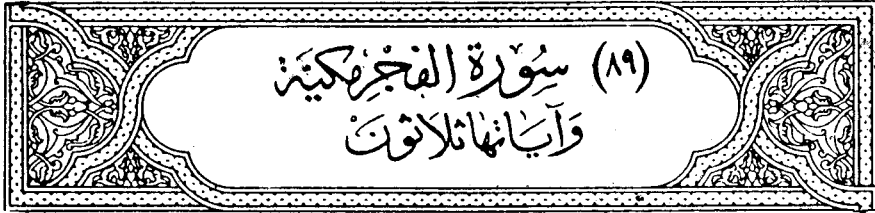 (٨٩) سُوْرَةِ الفَجْرِ مَكيَّة
وَآيَاتهَا ثلاَثونَ